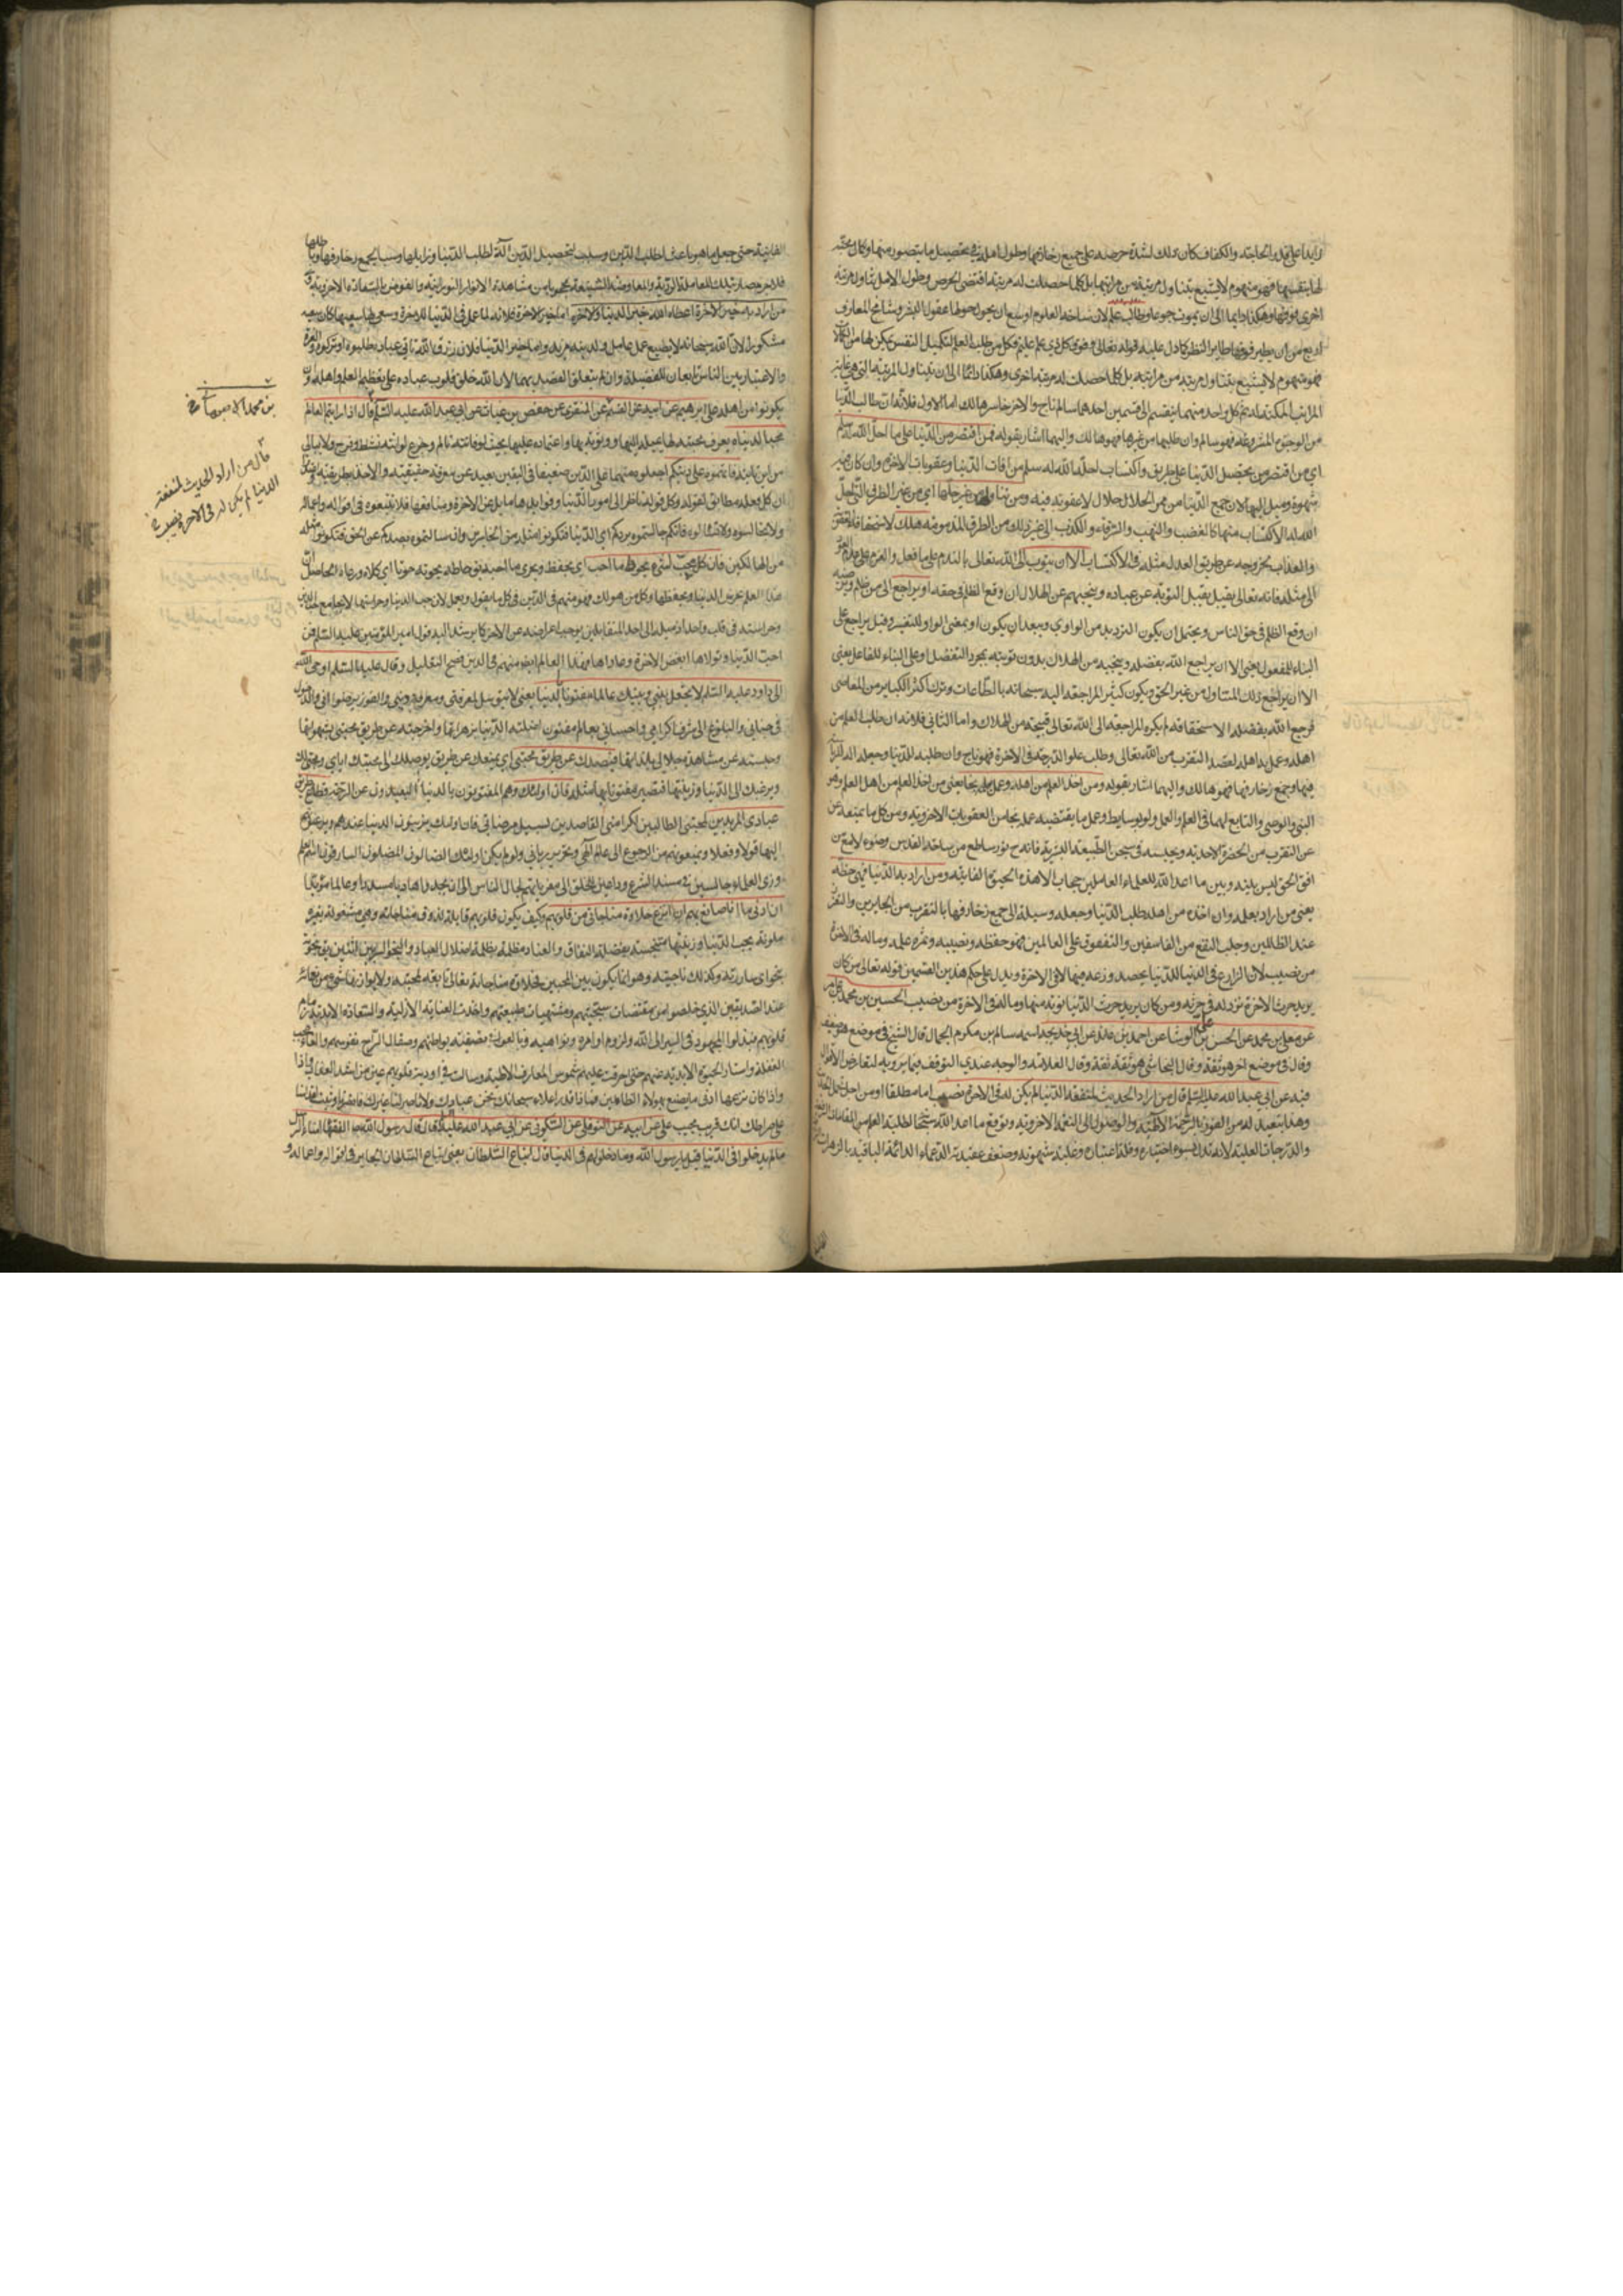 زايدا على قدر الحاجة والكفاف كان ذلك لشدة حرصه على جميع زخارفها وطول امله في تحصيل ما يتصور منها وكان محبة
لها بنفسها فهو منهوم لا يشبع بتناول مرتبة من مراتبها بل كلما حصلت له مرتبة اقتضى الحرص وطول الامل تناول مرتبة
اخرى فوقها وهكذا دايما الى ان يموت جوعا وطالب علم لان ساحة العلوم اوسع ان يحول حولها عقول البشر وشامخ المعارف
ارفع من ان يطير فوقها طاير النظر كما دل عليه قوله تعالى وفوق كل ذي علم عليم فكل من طلب العلم لتكميل النفس
فهو منهوم لا يشبع بتناول مرتبة من مراتبه بل كلما حصلت له مرتبة اخرى وهكذا دائما الى ان يتناول المرتبة التي هي غاية
المراتب الممكنة له ثم كل واحد منهما ينقسم الى قسمين احدهما سالم ناج والاخر خاسر هالك اما الاول فلان طالب الدنيا
من الوجوه المشروعة فهو سالم وان طلبها من غيرها فهو هالك واليهما اشار بقوله فمن اقتصر من الدنيا على ما احل الله له سلم
اي من اقتصر من تحصيل الدنيا على طريق واكتساب احله الله له سلم من افات الدنيا وعقوبات الاخرة وان كان
شهوة وميل اليها لان جمع الدنيا من ممر الحلال حلال لا عقوبة فيه ومن تناولها من غير حلها اي من غير الطرق التي احل
الله له الاكتساب منها كالغضب والنهب والسرقة والكذب الى غير ذلك من الطرق المذمومة هلك لاستحقاقه
والعذاب بخروجه عن طريق العدل مثله في الاكتساب الا ان يتوب الى الله تعالى بالندم على ما فعل والعزم على عدم العود
الى مثله فانه تعالى يقبل التوبة عن عباده وينجيهم عن الهلاك ان وقع الظلم في حقه او يراجع الى من ظلم
ان وقع الظلم في حق الناس ويحتمل ان يكون الترديد من الراوي ويبعد ان يكون او بمعنى الواو للتفسير وقيل يراجع على
البناء للمفعول يعني الا ان يراجع الله بفضله وينجيه من الهلاك بدون توبته بمجرد التفضل وعلى البناء للفاعل يعني
الا ان يراجع ذلك المتناول من غير الحق ويكون كثير المراجعة اليه سبحانه بالطاعات وترك اكثر الكباير من المعاصي
فرجع الله بفضله لا ستحقاقه بكثرة المراجعة الى الله تعالى فينجيه من الهلاك واما الثاني فلانه ان طلب العلم من
اهله وعمل به اهله لقصد التقرب من الله تعالى وطلب علو الدرجة في الاخرة فهو ناج وان طلبه للدنيا وجعله الة
فيها وجمع زخارفها فهو هالك واليهما اشار بقوله ومن اخذ العلم من اهله وعمل بعلمه نجا يعني من اخذ العلم من اهل العلم وهو
النبي والوصي والتابع لهما في العلم والعمل ولو بوسايط وعمل بما يقتضيه علمه نجا من العقوبات الاخروية ومن كل ما يمنعه
عن التقرب من الحضرة الاحدية ويحبسه في سجن الطبيعة البشرية فانه ح نور ساطع من ساحة القدس وضوء لامع من
افق الحق ليس بينه وبين ما اعد الله للعلماء العاملين حجاب الا هذه الحيوة الفانية ومن اراد به الدنيا فهي حظه
يعني من اراد بعلمه وان اخذه من اهله طلب الدنيا وجعله وسيلة الى جمع زخارفها بالتقرب من الجابرين والتعزز
عند الظالمين وجلب النفع من الفاسقين والتفوق على العالمين فهو حظه ونصيبه وثمرة علمه وماله في الاخرة
من نصيب لان الزارع في الدنيا للدنيا يحصد زرعه فيها لا في الاخرة ويدل على حكم هذين القسمين قوله تعالى من كان
يريد حرث الاخرة نزد له في حرثه ومن كان يريد حرث الدنيا نؤته منها وماله في الاخرة من نصيب الحسين بن محمد بن عامر
عن معلى بن محمد عن الحسن بن علي الوشا عن احمد بن عائذ عن ابي خديجة اسمه سالم بن مكرم الجمال قال الشيخ في موضع هو ضعيف
وقال في موضع اخر هو ثقة وقال النجاشي هو ثقة ثقة وقال العلامة والوجه عندي التوقف فيما يرويه لتعارض الاقوال
فيه عن ابي عبد الله عليه السلام قال من اراد الحديث لمنفعة الدنيا لم يكن له في الاخرة نصيب اما مطلقا او من اجل
وهذا تبعيد له من الفوز بالرحمة الالهية والوصول الى النعمة الاخروية وتوقع ما اعد الله سبحانه لطلبة العلم من المقامات
والدرجات العلية لانه بدل بسوء اختياره وقلة اعتباره وغلبة شهوته وضعف عقيدته النعماء الدائمة الباقية بالزهرات
الفانية حتى جعل ما هو باعث لطلب الدين وسيلة لتحصيل الدين آلة لطلب الدنيا ونزايلها وسببا لجمع زخارفها
فلا جرم صارت تلك المعاملة الردية والمعاوضة الشنيعة محجوبا من مشاهدة الانوار الربوبية والفوز بالسعادة الاخروية
من اراد به خير الاخرة اعطاه الله خير الدنيا والاخرة اما خير الاخرة فلانه لما عمل في الدنيا للاخرة وسعى لها سعيها كان سعيه
مشكورا لان الله سبحانه لا يضيع عمل عامل ولدينا مزيد واما خير الدنيا فلان رزق الله تا في عباده يطلبه
والاعتبار بين الناس تابعان للفضيلة وان لم يتعلق القصد بهما لان الله خلق قلوب عباده على تعظيم العلم واهله وان
يكونوا من اهله علي بن ابراهيم عن ابيه عن القسم عن المنقري عن حفص بن غياث عن ابي عبد الله عليه السلام قال اذا رايتم العالم
محبا لدنياه يعرف بمحبته لها بميله اليها ووثوقه بها واعتماده عليها بحيث لو فاتته تالم وجزع ولو اتته نشط وفرح ولا يبالي
من اين اتته فاتهموه على دينكم اجعلوه متهما على الدين ضعيفا في اليقين بعيد عن معرفة حقيقته والاخذ بطريقته
ان كل عمله مطابق لقوله وكل قوله ناظر الى امور الدنيا وفوايدها مايل عن الاخرة ومنافعها فلا تتبعوه في اقواله واعماله
ولا تجالسوه ولا تسالوه فانكم جالستموه يردكم اي الدنيا فتكونوا مثله من الخاسرين وان سالتموه يصدكم عن الحق فتكونوا مثله
من الهالكين فان كل محب لشيء يحوط ما احب اي يحفظ ويحرى ما احبه
هذا العالم عرض الدنيا ويحفظها وكل من هو لك فهو متهم في الدين في كل ما يقول ويعمل لان حب الدنيا وحراستها لا يجامع
وحراسته في قلب واحد اذ ميله الى احد المتقابلين يوجب اعراضه عن الاخر كما يرشد اليه قول امير المؤمنين عليه السلام فمن
احب الدنيا وتولاها ابغض الاخرة وعاداها فهذا العالم متهم في الدين وقال عليه السلام اوحى الله
الى داود عليه السلام لا تجعل بيني وبينك عالما مفتونا بالدنيا يعني لا يتوسل لمعرفتي
في جناني والبلوغ الى شرف اكرامي واحساني بعالم مفتون اضلته الدنيا بزهراتها واخرجته عن طريق محبتي بشهواتها
وحبسته عن مشاهدة جلالي بلذاتها فيصدك عن طريق محبتي اي يمنعك عن طريق يوصلك الى محبتك اياي ومحبتي لك
ويرغبك الى الدنيا وزينتها فتصير مفتونا بها مثله فان اولئك وهم المفتونون بالدنيا البعيدون عن الرحمة قطاع طريق
عبادي المريدين لمحبتي الطالبين لكرامتي القاصدين لسبيل مرضاتي فان اولئك يزينون الدنيا عندهم
اليها قولا وفعلا ويمنعونهم من الرجوع الى عالم الهي ونحرير رباني اولئك الضالون المضلون السارقون
وزي العلماء جالسين في مسند الشرع وداعين الخلق الى
ان ادنى ما انا صانع بهم ان انزع حلاوة مناجاتي من قلوبهم وكيف يكون قلوبهم قابلة لذوق مناجاته وهي مشغولة بغيره
ملوثة بحب الدنيا وزينتها متنجسة بفضلة النفاق والعناد مظلمة بظلمة اضلال العباد والنجوى السر بين اثنين يق نجوته
نجوا اي ساررته وكذلك ناجيته وهو انما يكون بين المحبين فحلاوة مناجاته تعالى تابعة لمحبته
عند الصديقين الذي خلصوا من مقتضيات سجيتهم ومشتهيات طبيعتهم واخذت العناية الازلية والسعادة الابدية زمام
قلوبهم فبذلوا المجهود في السير الى الله ولزوم اوامره ونواهيه
الغفلة واستار الحيوة الابدية عنهم حتى اشرقت عليهم شموس المعارف الالهية وسالت في اودية قلوبهم عين من
واذا كان نزعها ادنى ما يصنع بهؤلاء الظالمين فما ذا قدر اعلاه سبحانك نحن عبادك ولا ناصر لنا غيرك
على صراطك انك قريب مجيب علي عن ابيه عن النوفلي عن السكوني عن ابي عبد الله عليه السلام قال قال رسول الله ص الفقهاء امناء الرسل
مالم يدخلوا في الدنيا قيل يا رسول الله وما دخولهم في الدنيا قال اتباع السلطان يعني اتباع السلطان الجاير في اقواله واعماله و
قال من اراد الحديث لمنفعة
الدنيا لم يكن له في الاخرة نصيب